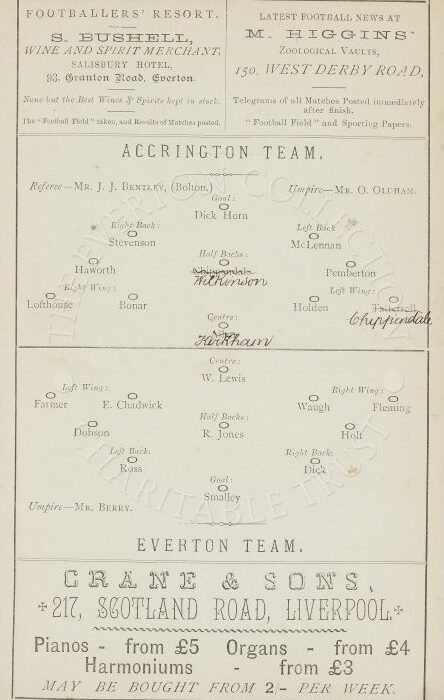 FOOTBALLERS' RESORT.
S. BUSHELL,
WINE AND SPIRIT MERCHANT,
SALISBURY HOTEL,
93, Granton Road, Everton.
None but the Best Wines & Spirits kept in stock.
The "Football Field" taken, and Results of Matches posted.
LATEST FOOTBALL NEWS AT
M. HIGGINS'
ZOOLOGICAL VAULTS,
150, WEST DERBY ROAD,
Telegrams of all Matches Posted immediately
after finish.
"Football Field" and Sporting Papers.
ACCRINGTON TEAM.
Referee—MR. J. J. BENTLEY, (Bolton.)
Umpire—MR. O. OLDHAM.
Goal:
Dick Horn
Right Back:
Stevenson
Left Back
McLennan
Half Backs:
Haworth
Chippendale
Wilkinson
Pemberton
Right Wing:
Left Wing:
Lofthouse
Bonar
Holden
Chippendale
Centre:
Kirkham
Centre:
W. Lewis
Left Wing:
Right Wing:
Farmer
E. Chadwick
Waugh
Fleming
Half Backs:
Dobson
R. Jones
Holt
Left Back:
Ross
Right Back:
Dick
Goal:
Smalley
Umpire—MR. BERRY.
EVERTON TEAM.
CRANE & SONS,
217, SCOTLAND ROAD, LIVERPOOL.
Pianos - from £5 Organs - from £4
Harmoniums - from £3
MAY BE BOUGHT FROM 2/- PER WEEK.
THE EVERTON COLLECTION
CHARITABLE TRUST